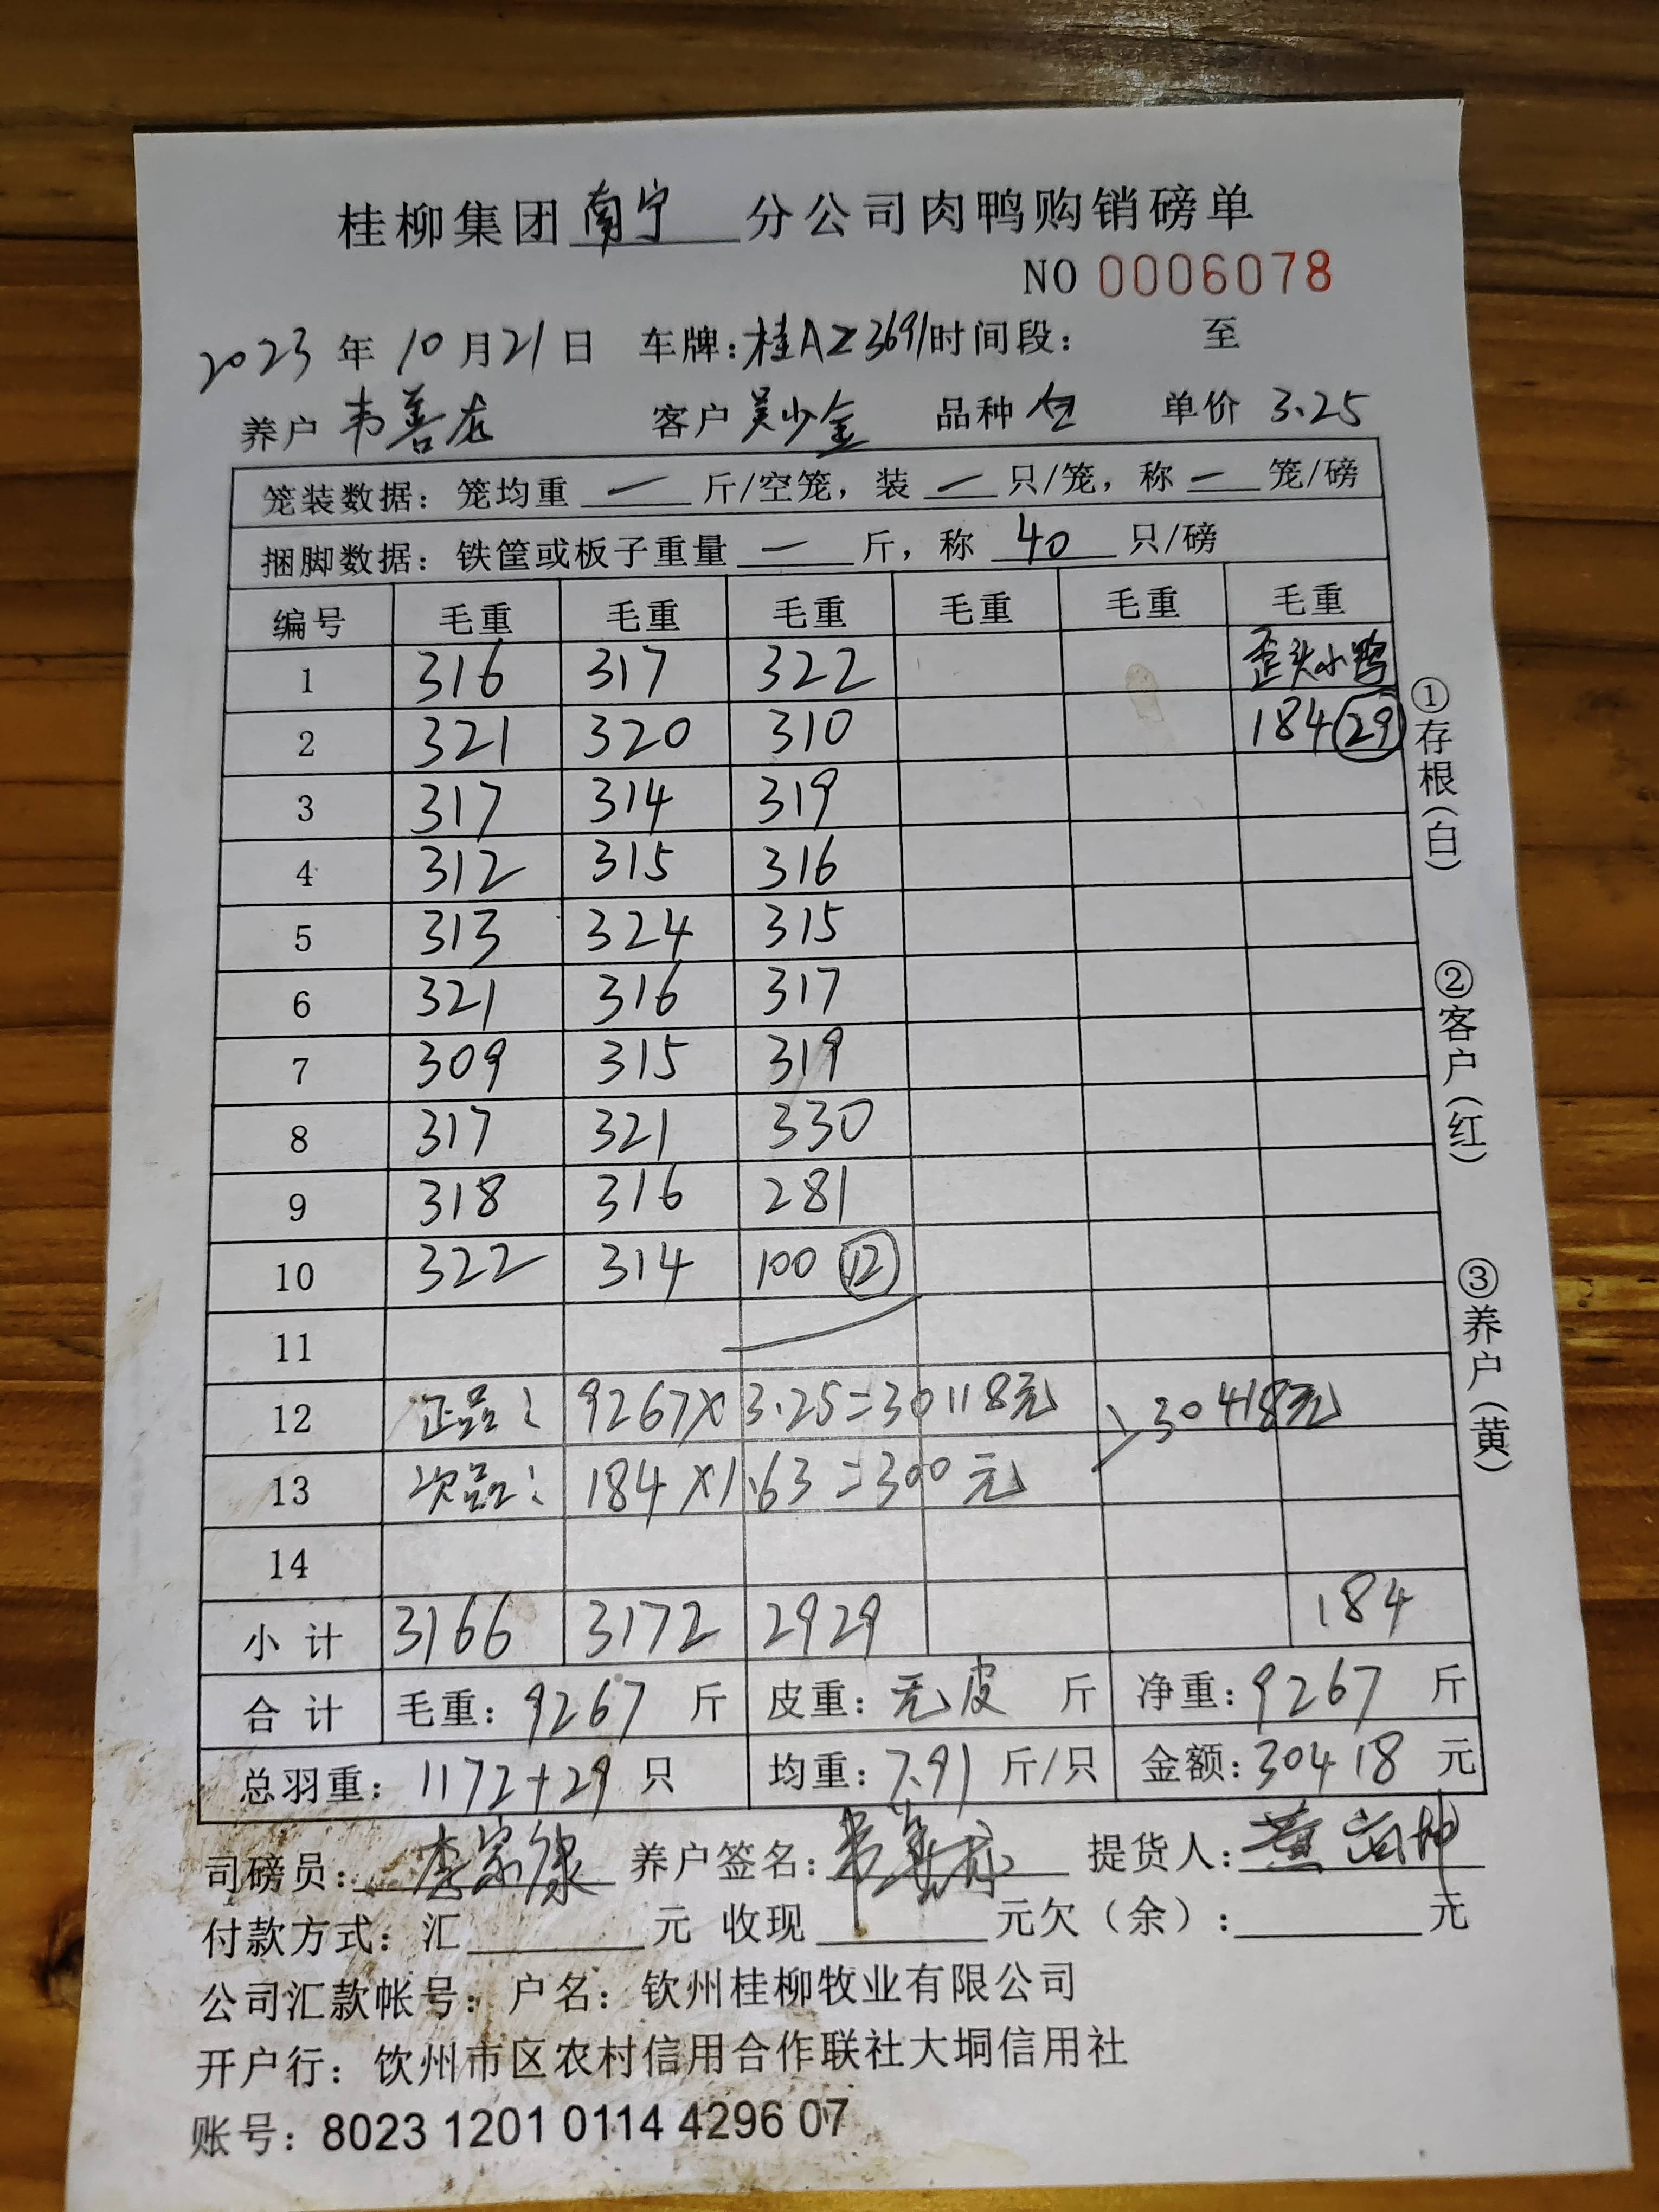 桂柳集团南宁分公司肉鸭购销磅单
NO 0006078
2023年10月21日 车牌:桂AZ3691时间段: 至
养户 韦善龙 客户 吴少金 品种 仝 单价 3.25
笼装数据: 笼均重 一 斤/空笼, 装 一 只/笼, 称 一 笼/磅
捆脚数据: 铁筐或板子重量 一 斤, 称 40 只/磅
编号 毛重 毛重 毛重 毛重 毛重 毛重
1 316 317 322 歪头小鸭
2 321 320 310 184 29
3 317 314 319
4 312 315 316
5 313 324 315
6 321 316 317
7 309 315 319
8 317 321 330
9 318 316 281
10 322 314 100 12
11
12 正品: 9267×3.25=30118元 30418元
13 次品: 184×1.63=300元
14
小计 3166 3172 2929 184
合计 毛重: 9267 斤 皮重: 无皮 斤 净重: 9267 斤
总羽重: 1172+29 只 均重: 7.91 斤/只 金额: 30418 元
司磅员: 李宗康 养户签名: 韦善龙 提货人: 黄
付款方式: 汇 元 收现 元欠(余): 元
公司汇款帐号: 户名: 钦州桂柳牧业有限公司
开户行: 饮州市区农村信用合作联社大垌信用社
账号: 8023 1201 0114 4296 07
①存根(白)
②客户(红)
③养户(黄)